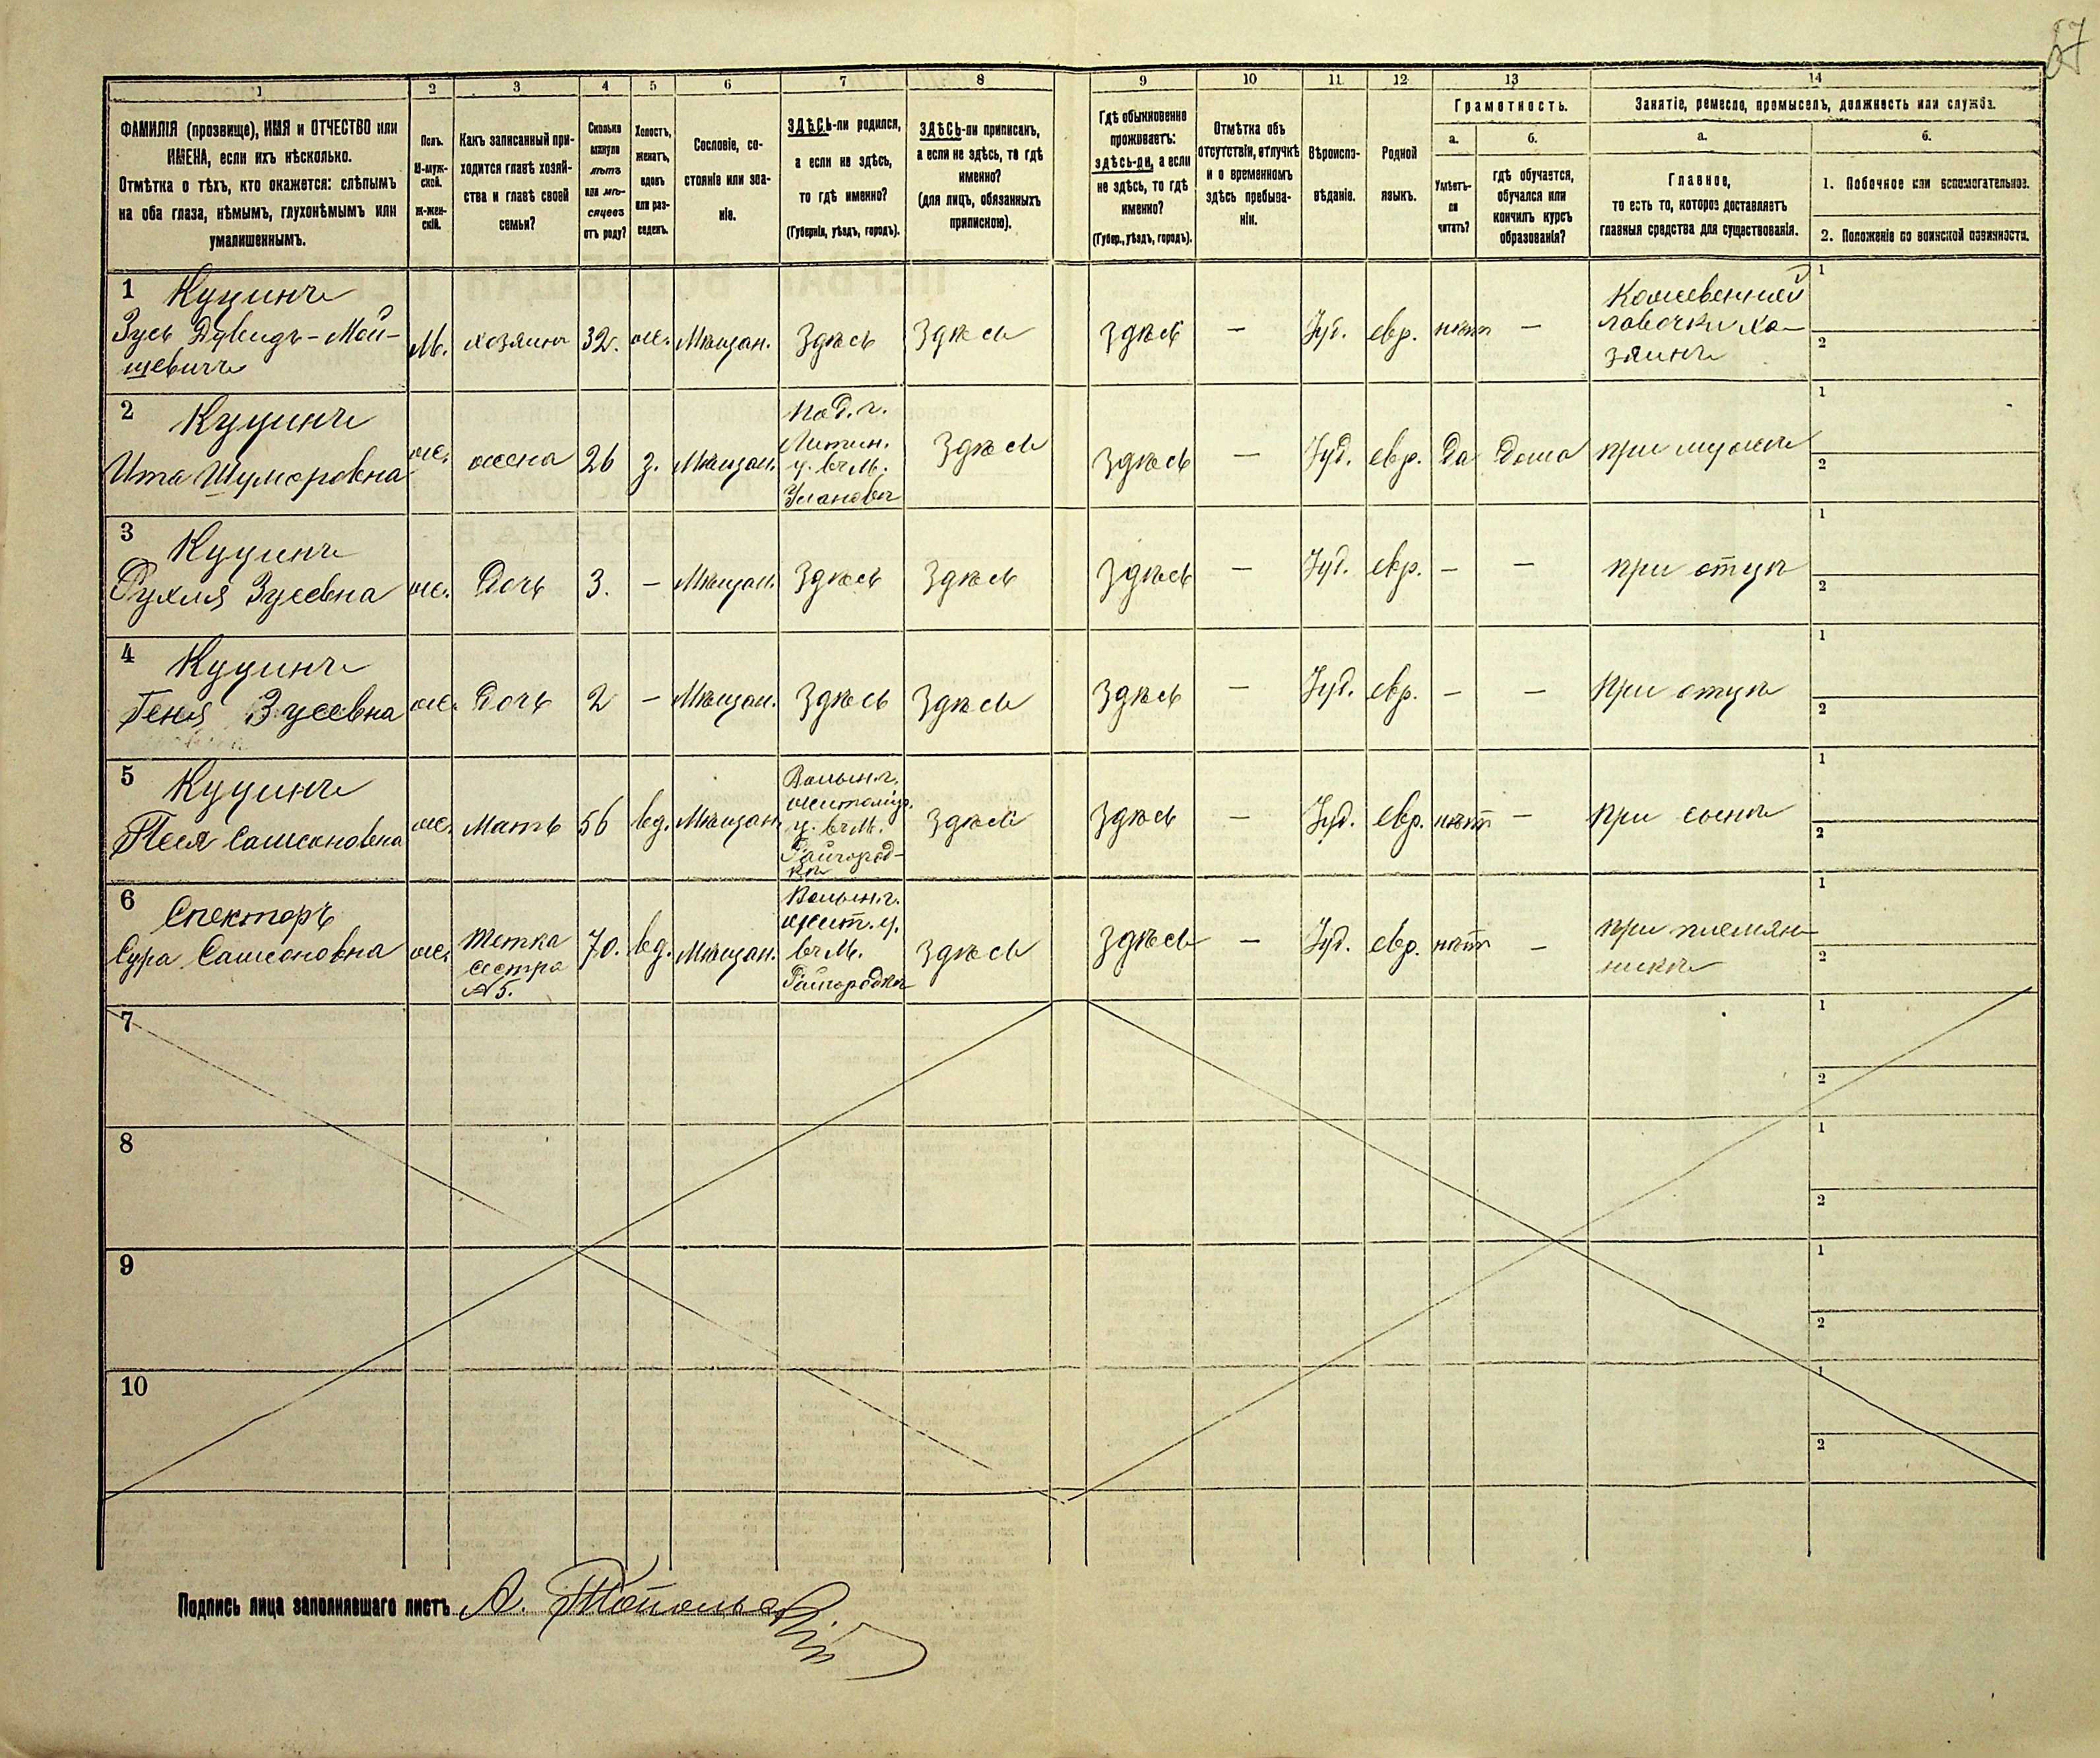 67
1 2 3 4 5 6 7 8 9 10 11 12 13 14
ФАМИЛІЯ (прозвище), ИМЯ и ОТЧЕСТВО или
ИМЕНА, если ихъ нѣсколько.
Отмѣтка о тѣхъ, кто окажется: слѣпымъ
на оба глаза, нѣмымъ, глухонѣмымъ или
умалишеннымъ.
Полъ.
М-муж-
ской.
Ж-жен-
скій.
Какъ записанный при-
ходится главѣ хозяй-
ства и главѣ своей
семьи?
Сколько
минуло
лѣтъ
или мѣ-
сяцевъ
отъ роду?
Холостъ,
женатъ,
вдовъ
или раз-
веденъ.
Сословіе, со-
стояніе или зва-
ніе.
ЗДѢСЬ-ли родился,
а если не здѣсь,
то гдѣ именно?
(Губернія, уѣздъ, городъ).
ЗДѢСЬ-ли приписанъ,
а если не здѣсь, то гдѣ
именно?
(для лицъ, обязанныхъ
припискою).
Гдѣ обыкновенно
проживаетъ:
здѣсь-ли, а если
не здѣсь, то гдѣ
именно?
(Губер., уѣздъ, городъ).
Отмѣтка объ
отсутствіи, отлучкѣ
и о временномъ
здѣсь пребыва-
ніи.
Вѣроиспо-
вѣданіе.
Родной
языкъ.
Грамотность.
а.
Умѣетъ-
ли
читать?
б.
гдѣ обучается,
обучался или
кончилъ курсъ
образованія?
Занятіе, ремесло, промыселъ, должность или служба.
а.
Главное,
то есть то, которое доставляетъ
главныя средства для существованія.
б.
1. Побочное или вспомогательное.
2. Положеніе по воинской повинности.
1 Куцинъ
Зусь Дувидъ-Мой-
шевичъ
М.
хозяинъ
32.
ж.
Мѣщан.
Здѣсь
Здѣсь
Здѣсь
—
Іуд.
евр.
нѣтъ
—
Кожевенной
лавочки хо-
зяинъ
1
2
2 Куцинъ
Ита Шумеровна
ж.
жена
26
з.
Мѣщан.
Под. г.
Литин.
у. въ м.
Улановѣ
Здѣсь
Здѣсь
—
Іуд.
евр.
Да
Дома
при мужѣ
1
2
3 Куцинъ
Рухля Зусевна
ж.
Дочь
3.
—
Мѣщан.
Здѣсь
Здѣсь
Здѣсь
—
Іуд.
евр.
—
—
при отцѣ
1
2
4 Куцинъ
Геня Зусевна
ж.
Дочь
2
—
Мѣщан.
Здѣсь
Здѣсь
Здѣсь
—
Іуд.
евр.
—
—
При отцѣ
1
2
5 Куцинъ
Песя Самсоновна
ж.
Мать
56
вд.
Мѣщан.
Волын. г.
житомір.
у. въ м.
Райгород-
кѣ
Здѣсь
Здѣсь
—
Іуд.
евр.
нѣтъ
—
При сынѣ
1
2
6 Спекторъ
Сура Самсоновна
ж.
Тетка
сестра
№ 5.
70.
вд.
Мѣщан.
Волын. г.
жит. у.
въ м.
Райгородкѣ
Здѣсь
Здѣсь
—
Іуд.
евр.
нѣтъ
—
при племян-
никѣ
1
2
7
1
2
8
1
2
9
1
2
10
1
2
Подпись лица заполнявшаго листъ А. Топольскій